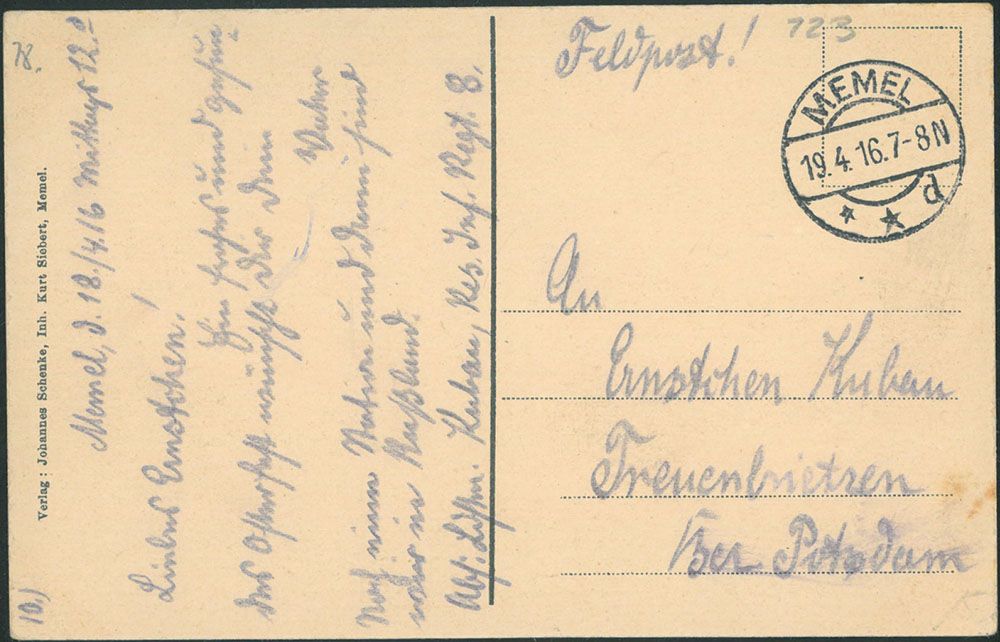 78.
Memel, d. 18./4.16 Mittags 12.°
Liebes Ernstchen!
Ein frohes und gesun-
des Osterfest wünscht Dir Dein
Vater
Noch eine und dann sind
wir in Rußland.
Abs: Kubau, Res. Inf. Regt. 8.
10.)
Verlag: Johannes Schenke, Inh. Kurt Siebert, Memel.
Feldpost!
723
MEMEL
19.4.16.7-8N
d
An
Ernstchen Kubau
Treuenbrietzen
Bei Potsdam